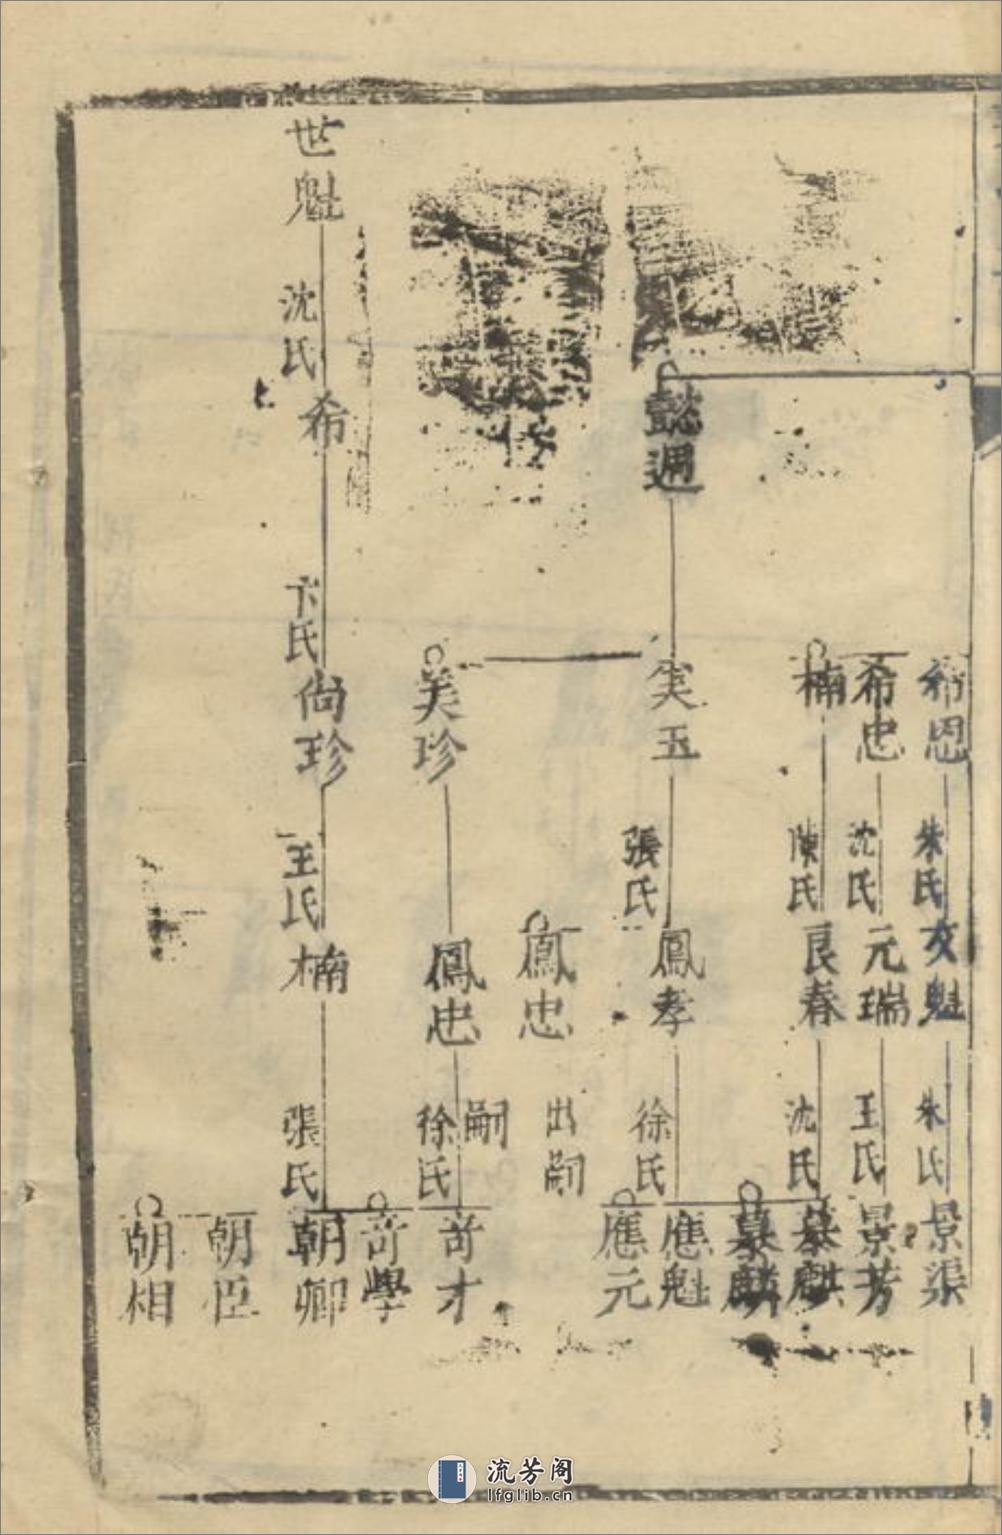 希恩
朱氏
文魁
朱氏
景渠
希忠
沈氏
元瑞
王氏
景芳
楠
陳氏
良春
沈氏
慕麒
慕麟
懿週
奐玉
張氏
鳳孝
徐氏
應魁
應元
鳳忠
出嗣
美珍
鳳忠
嗣
徐氏
奇才
奇學
世魁
沈氏
希
卞氏
尚珍
王氏
楠
張氏
朝卿
朝臣
朝相
流芳阁
lfglib.cn